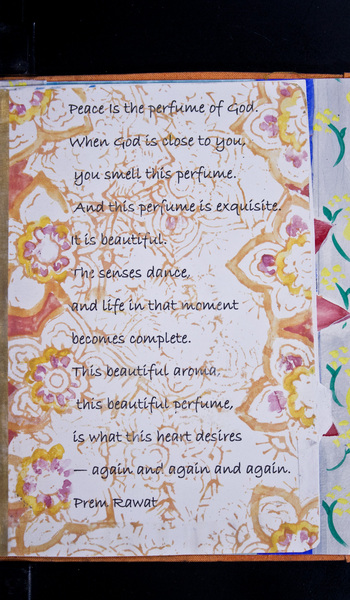 Peace Is the perfume of God.
When God is close to you,
you smell this perfume.
And this perfume is exquisite.
It is beautiful.
The senses dance,
and life in that moment
becomes complete.
This beautiful aroma,
this beautiful perfume,
is what this heart desires
— again and again and again.
Prem Rawat